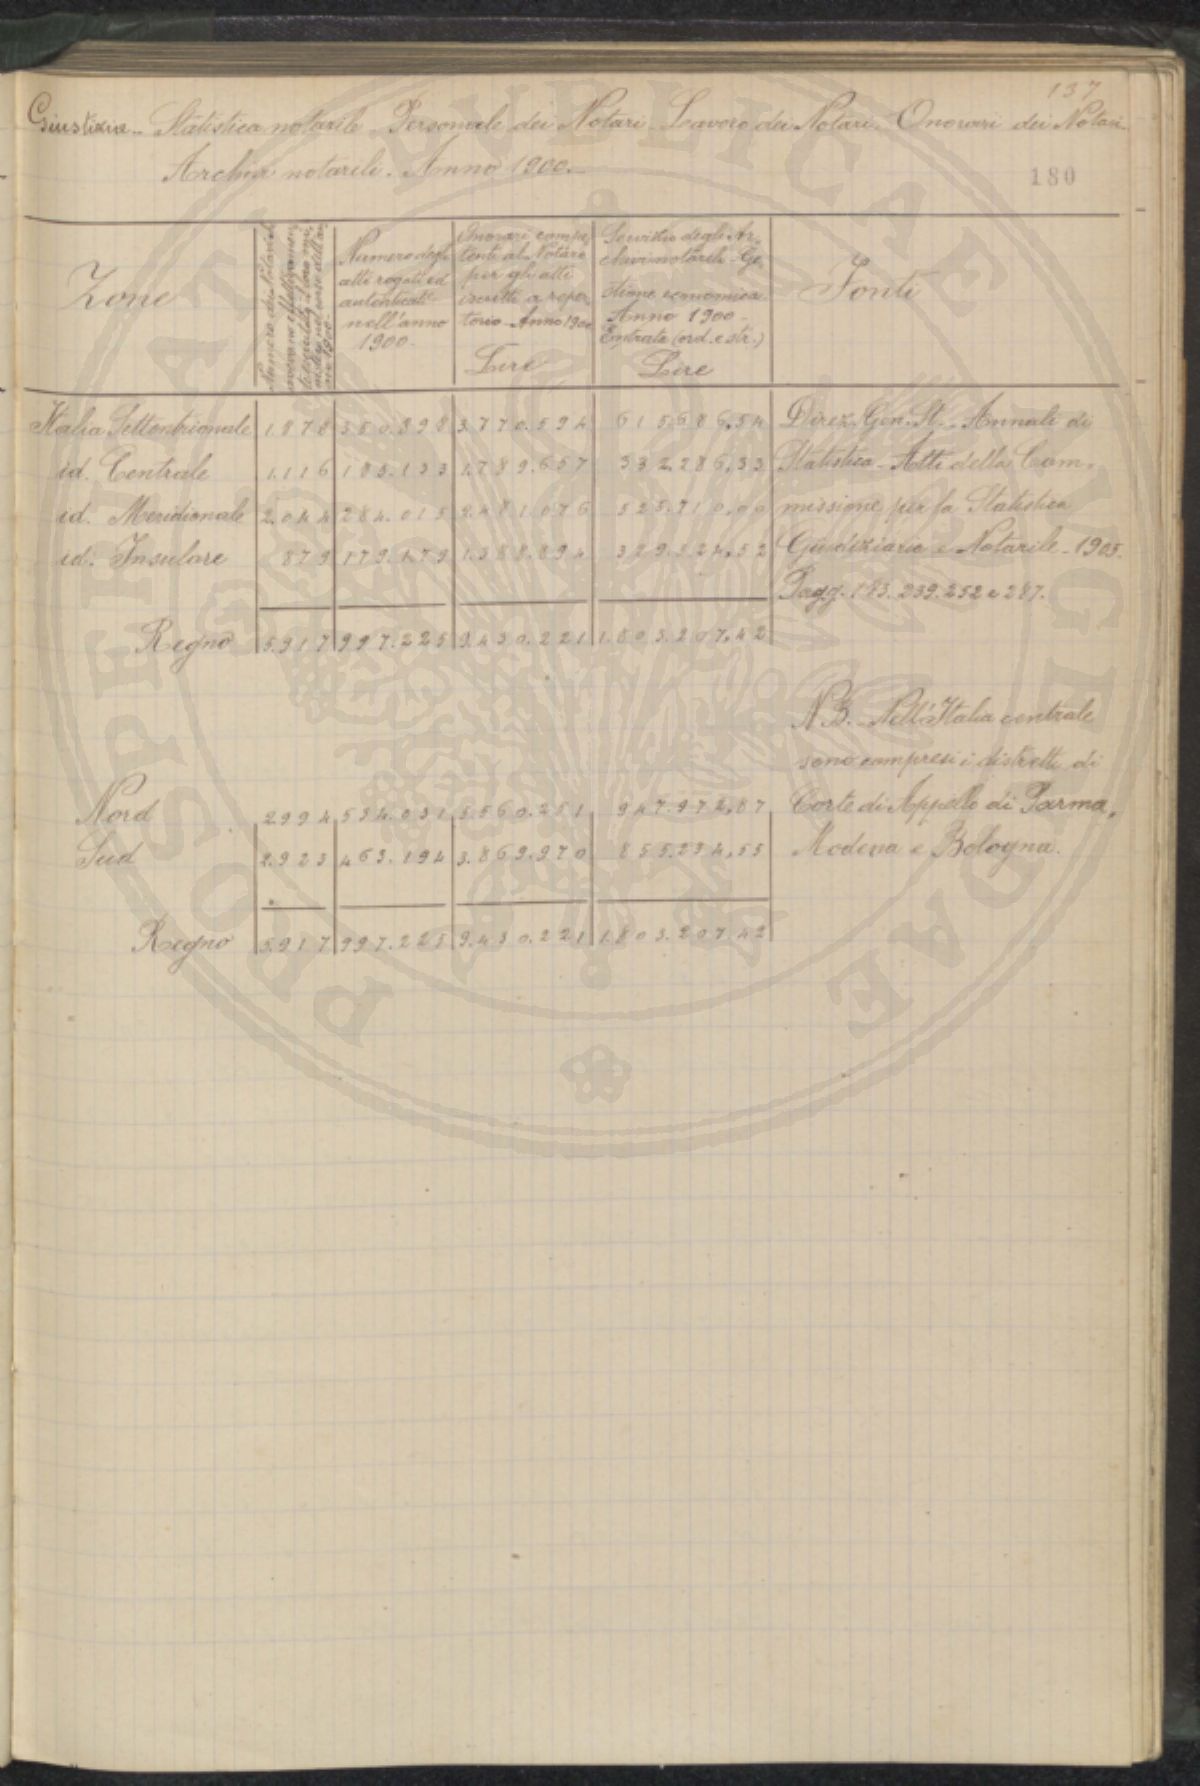 137
Giustizia - Statistica notarile - Personale dei Notari - Lavoro dei Notari - Onorari dei Notari -
Archivi notarili. Anno 1900.-
180
Zone
Numero degli
atti rogati ed
autenticati
nell'anno
1900-
Onorari compe-
tenti al Notaro
per gli atti
iscritti a reper-
torio - Anno 1900
Lire
Servizio degli Ar-
chivi notarili - Ge-
stione economica
Anno 1900 -
Entrate (ord. e str.)
Lire
Fonti
Italia Settentrionale 1.878 350.898 3.770.594 615.686,54 Direz. Gen. St. - Annali di
id. Centrale 1.116 183.133 1.789.657 332.286,33 Statistica - Atti della Com-
id. Meridionale 2.044 284.015 2.481.076 525.710,00 missione per la Statistica
id. Insulare 879 179.179 1.388.894 329.524,52 Giudiziaria e Notarile - 1905.
Pagg. 183. 239. 252 e 287.
Regno 5.917 997.225 9.430.221 1.803.207,42
N.B. - Nell'Italia centrale
sono compresi i distretti di
Nord 2994 534.031 5.560.251 947.972,87 Corte di Appello di Parma,
Sud 2.923 463.194 3.869.970 855.234,55 Modena e Bologna.
Regno 5.917 997.225 9.430.221 1.803.207,42
PROSPERITATI PUBLICAE AUGENDAE